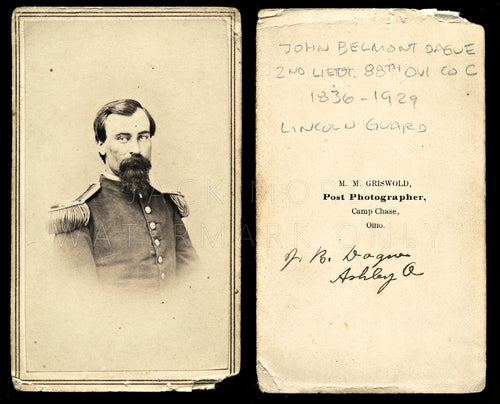 JOHN BELMONT DAGUE
2ND LIEUT. 88TH OVI CO C
1836 - 1929
LINCOLN GUARD
M. M. GRISWOLD,
Post Photographer,
Camp Chase,
Ohio.
J. B. Dague
Ashley O
WATERMARK ONLY